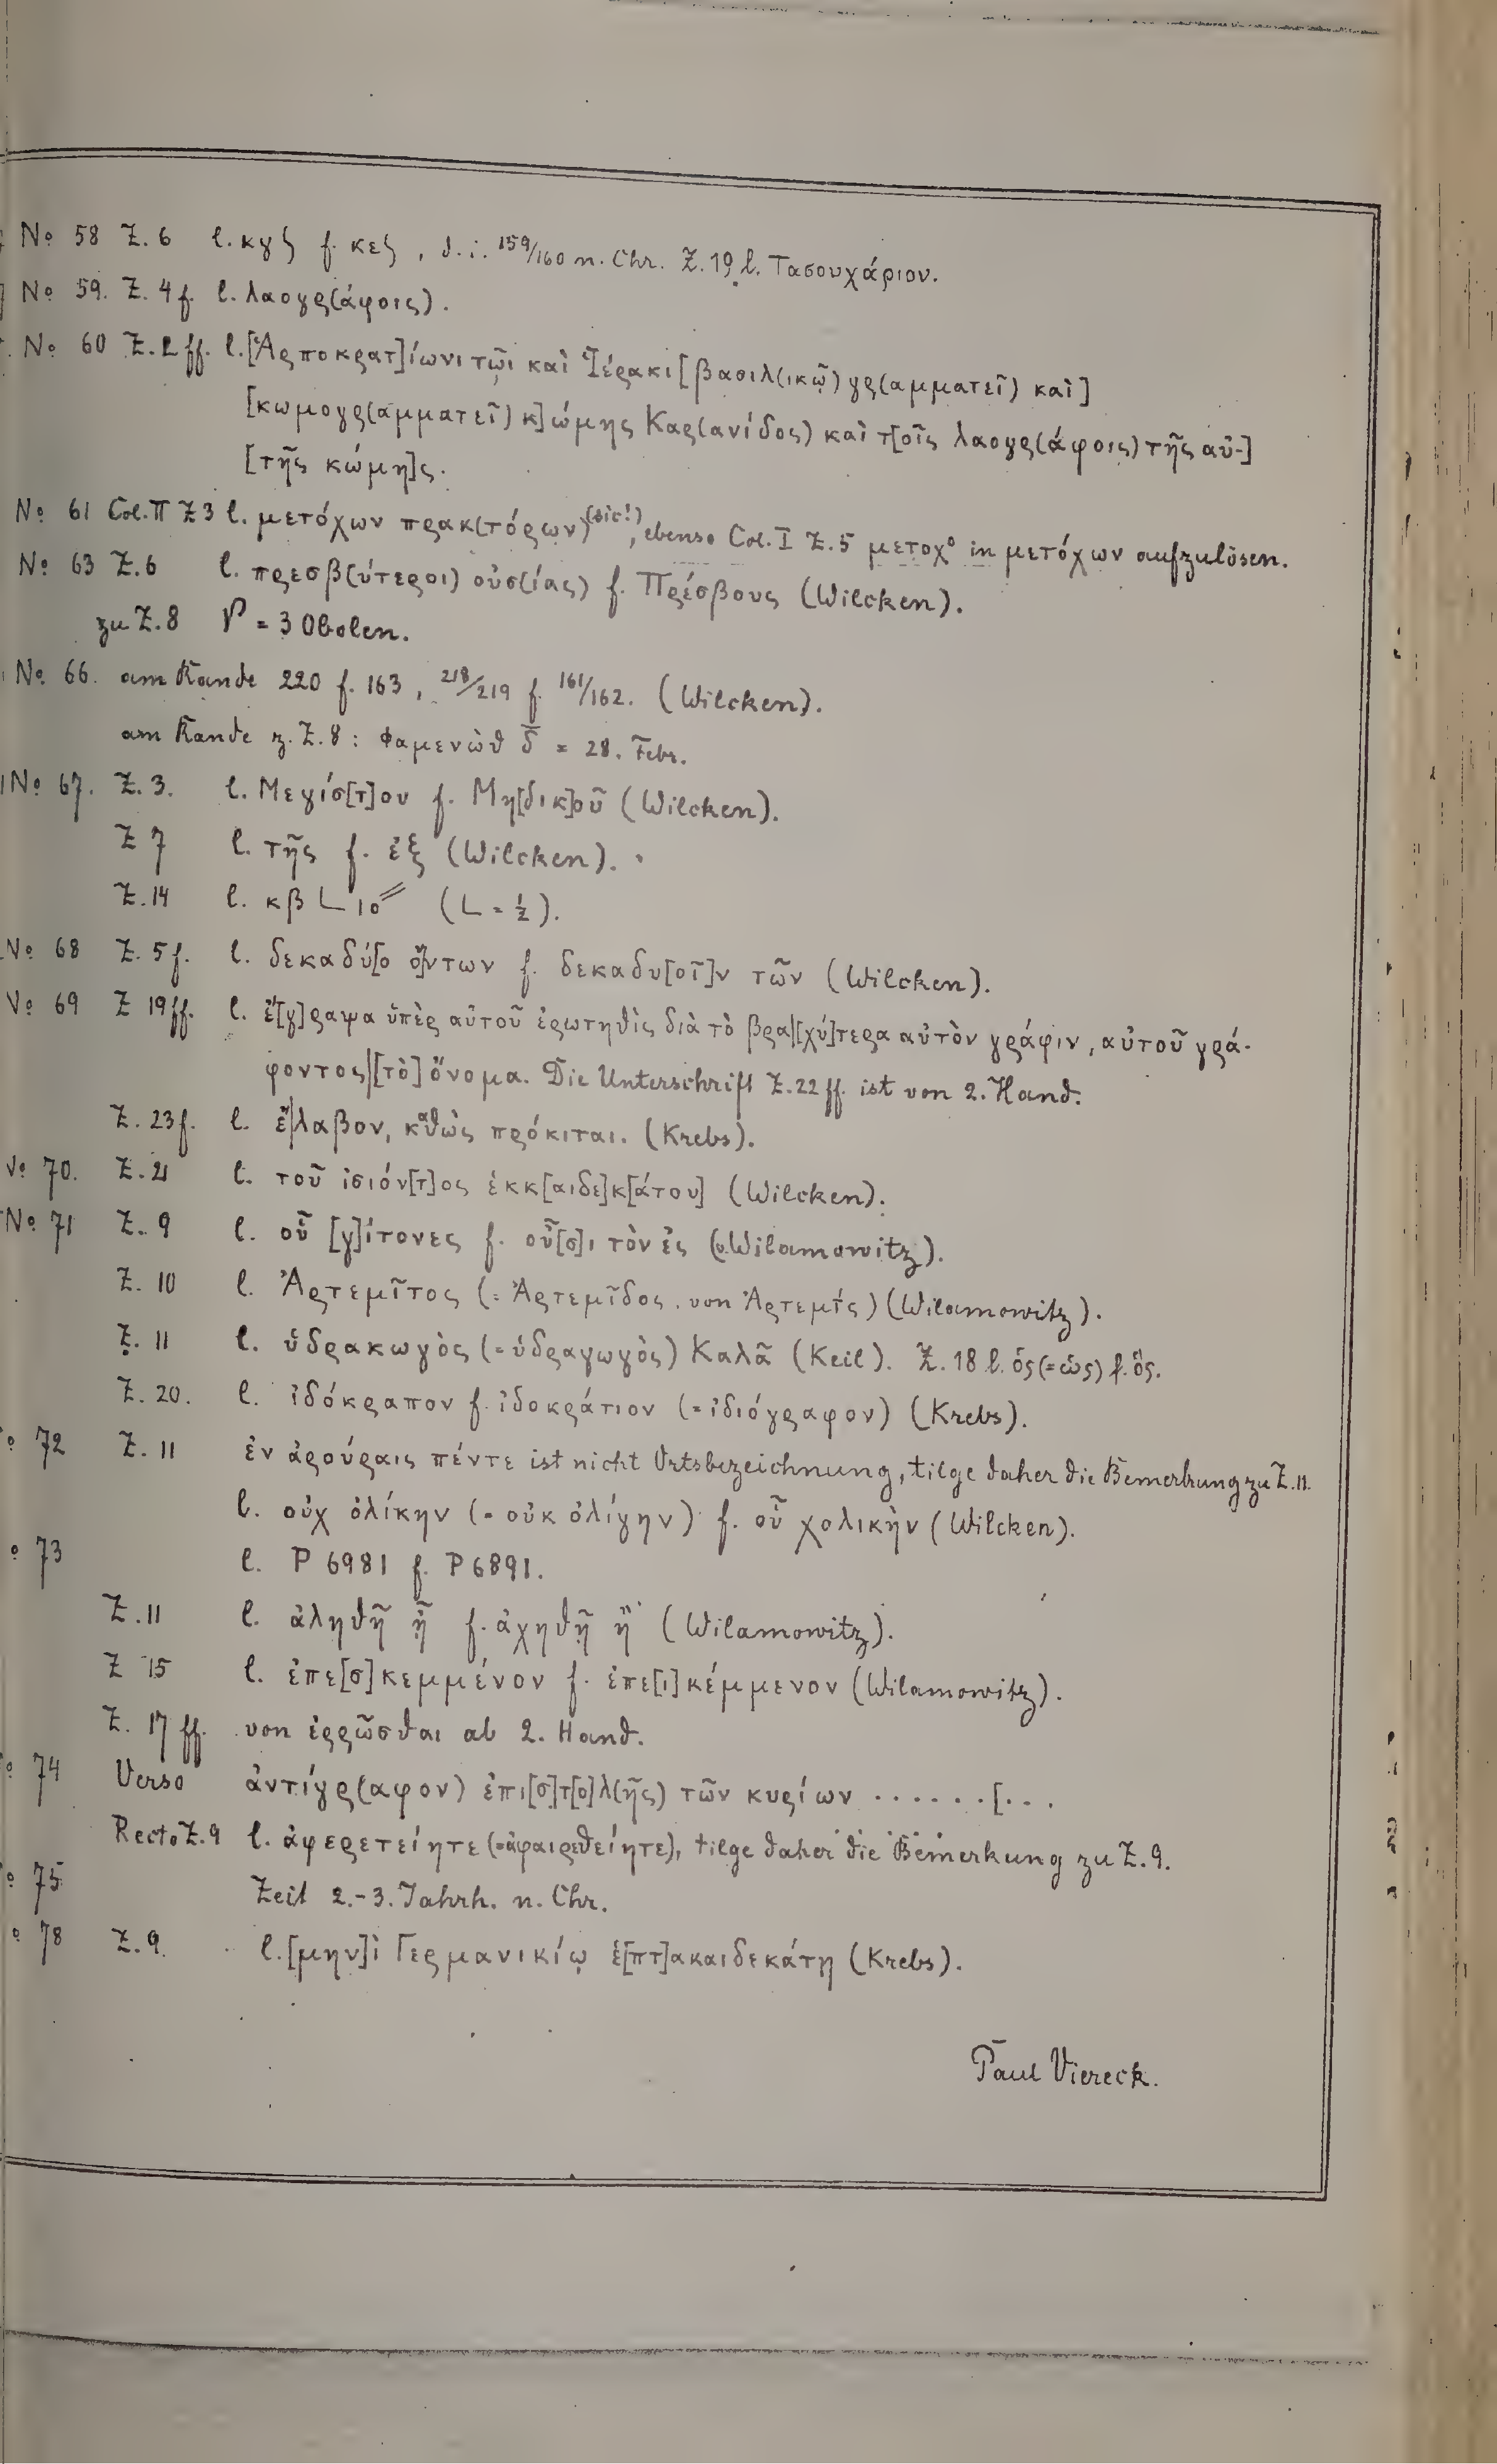 No 58 Z. 6 l. κγʃ f. κεʃ, d. i. 159/160 n. Chr. Z. 19 l. Τασουχάριον.
No 59. Z. 4 f. l. λαογρ(άφοις).
No 60 Z. 2 ff. l. [Ἁρποκρατ]ίωνι τῷι καὶ Ἱέρακι [βασιλ(ικῷ) γρ(αμματεῖ) καὶ]
[κωμογρ(αμματεῖ) κ]ώμης Καρ(ανίδος) καὶ τ[οῖς λαογρ(άφοις) τῆς αὐ-]
[τῆς κώμη]ς.
No 61 Col. II Z 3 l. μετόχων πρακ(τόρων) (sic!), ebenso Col. I Z. 5 μετοχο in μετόχων aufzulösen.
No 63 Z. 6 l. πρεσβ(ύτεροι) οὐσ(ίας) f. Πρέσβους (Wilcken).
zu Z. 8 = 3 Obolen.
No. 66. am Rande 220 f. 163, 218/219 f. 161/162. (Wilcken).
am Rande z. Z. 8: Φαμενὼθ δ̄ = 28. Febr.
No 67. Z. 3. l. Μεγίσ[τ]ου f. Μη[δικ]οῦ (Wilcken).
Z 7 l. τῆς f. ἐξ (Wilcken).
Z. 14 l. κβ L ιο″ (L = ½).
No 68 Z. 5 f. l. δεκαδύ[ο ὄ]ντων f. δεκαδυ[οῖ]ν τῶν (Wilcken).
No 69 Z 19 ff. l. ἔ[γ]ραψα ὑπὲρ αὐτοῦ ἐρωτηθὶς διὰ τὸ βρα|[χύ]τερα αὐτὸν γράφιν, αὐτοῦ γρά-
φοντος|[τὸ] ὄνομα. Die Unterschrift Z. 22 ff. ist von 2. Hand.
Z. 23 f. l. ἔ|λαβον, καθὼς πρόκιται. (Krebs).
No 70. Z. 21 l. τοῦ ἰσιόν[τ]ος ἑκκ[αιδε]κ[άτου] (Wilcken).
No 71 Z. 9 l. οὗ [γ]ίτονες f. οὗ[σ]ι τὸν ἐς (v. Wilamowitz).
Z. 10 l. Ἀρτεμῖτος (= Ἀρτεμῖδος von Ἀρτεμίς) (Wilamowitz).
Z. 11 l. ὑδρακωγὸς (= ὑδραγωγὸς) Καλᾶ (Keil). Z. 18 l. ὁς (= ὡς) f. ὃς.
Z. 20. l. ἰδόκραπον f. ἰδοκράτιον (= ἰδιόγραφον) (Krebs).
o 72 Z. 11 ἐν ἀρούραις πέντε ist nicht Ortsbezeichnung, tilge daher die Bemerkung zu Z. 11.
l. οὐχ ὀλίκην (= οὐκ ὀλίγην) f. οὗ χολικὴν (Wilcken).
o 73 l. P 6981 f. P 6891.
Z. 11 l. ἀληθῆ ᾖ f. ἀχηθῆ ἢ (Wilamowitz).
Z 15 l. ἐπε[σ]κεμμένον f. ἐπε[ι]κέμμενον (Wilamowitz).
Z. 17 ff. von ἐρρῶσθαι ab 2. Hand.
o 74 Verso ἀντίγρ(αφον) ἐπι[σ]τ[ο]λ(ῆς) τῶν κυρίων ......[...
Recto Z. 9 l. ἀφερετείητε (= ἀφαιρεθείητε), tilge daher die Bemerkung zu Z. 9.
o 75 Zeit 2.-3. Jahrh. n. Chr.
o 78 Z. 9. l. [μην]ὶ Γερμανικίῳ ἑ[πτ]ακαιδεκάτη (Krebs).
Paul Viereck.